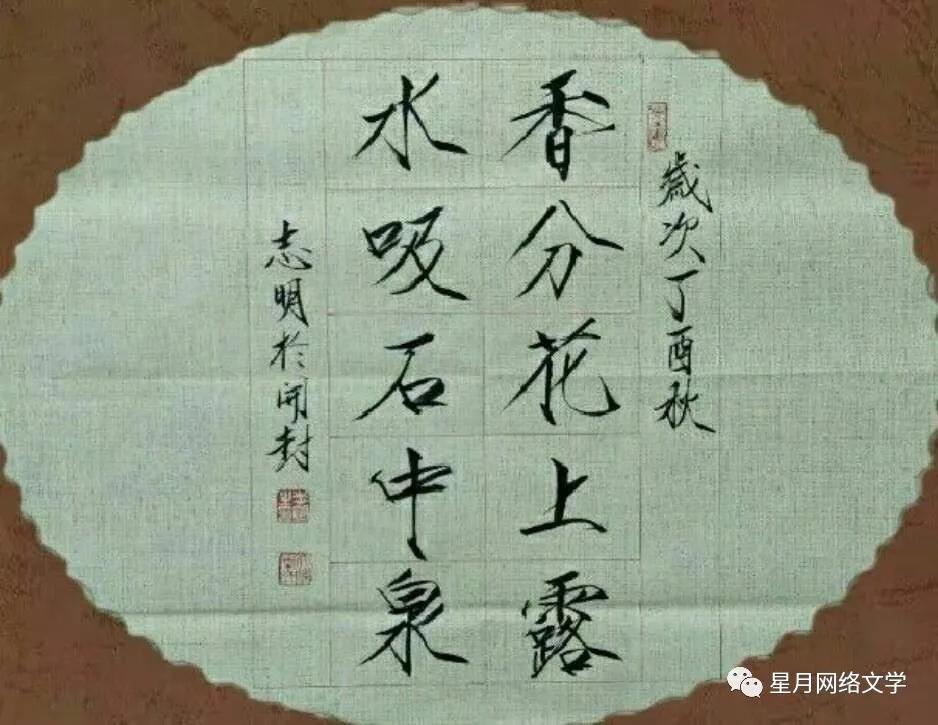 歲次丁酉秋
香分花上露
水吸石中泉
志明於開封
星月网络文学